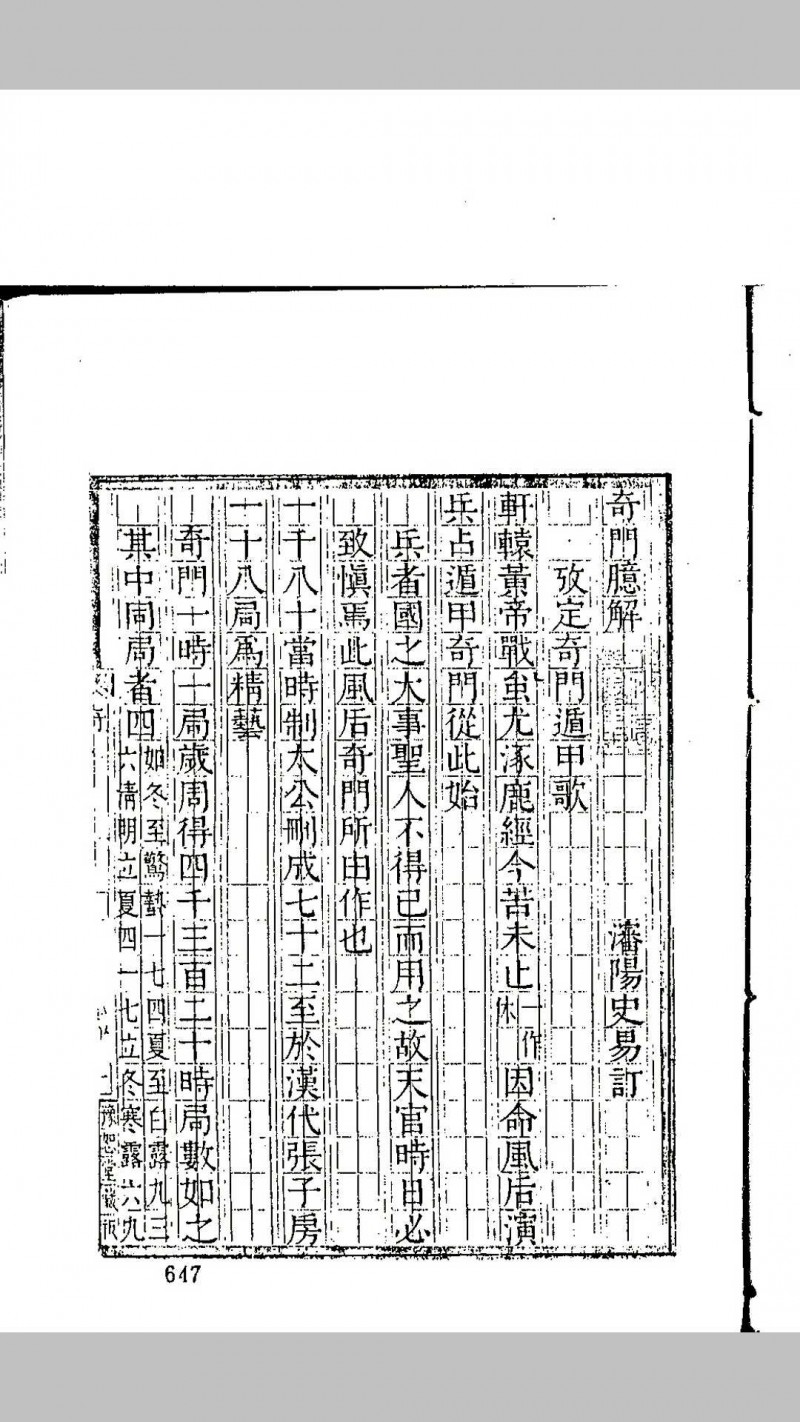 奇門臆解
瀋陽史易訂
攷定奇門遁甲歌
軒轅黃帝戰蚩尤涿鹿經今苦未止一作休因命風后演
兵占遁甲奇門從此始
兵者國之大事聖人不得已而用之故天官時日必
致愼焉此風后奇門所由作也
一千八十當時制太公刪成七十二至於漢代張子房
一十八局爲精藝
奇門十時一局歲周得四千三百二十時局數如之
其中同局者四如冬至驚蟄一七四夏至白露九三
六清明立夏四一七立冬寒露六九
豫恕堂藏版
647